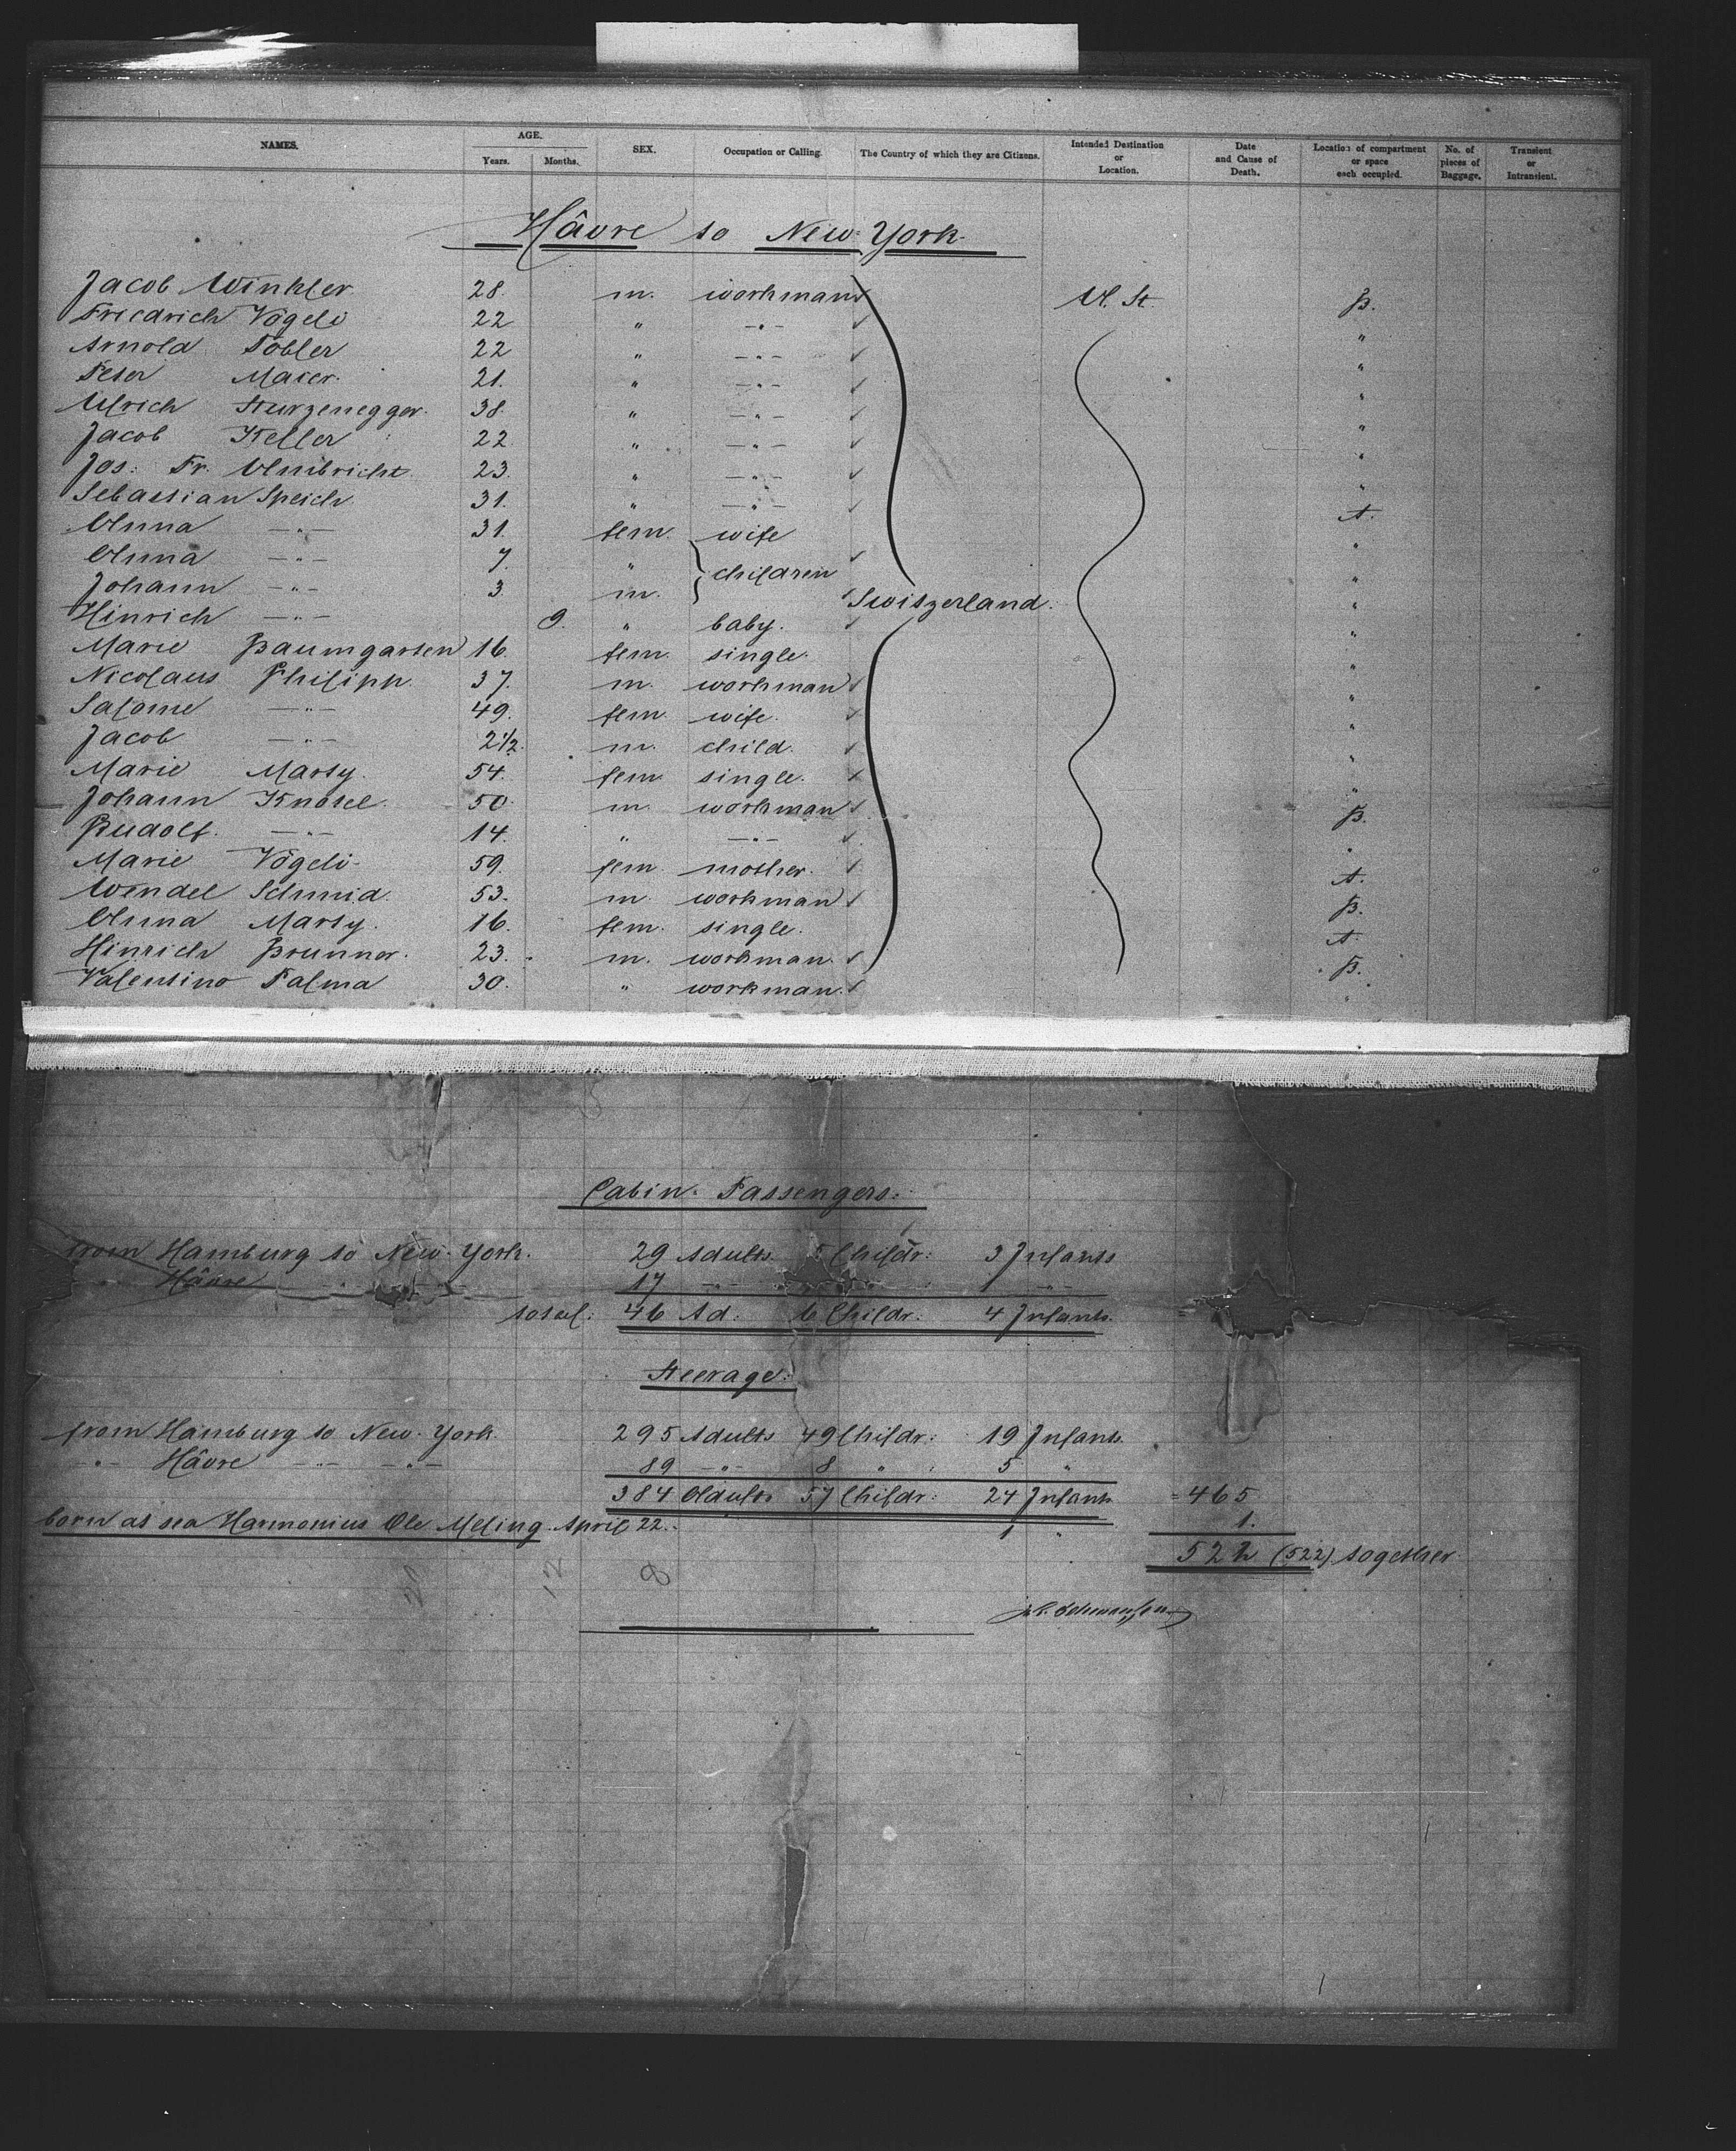 NAMES. AGE. Years. Months. SEX. Occupation or Calling. The Country of which they are Citizens. Intended Destination or Location. Date and Cause of Death. Location of compartment or space each occupied. No. of pieces of Baggage. Transient or Intransient.
Hâvre to New-York.
Jacob Winkler 28. m. workman U. St. B.
Friedrich Vögeli 22 " —"— "
Arnold Tobler 22 " —"— "
Peter Maier. 21. " —"— "
Ulrich Sturzenegger. 38. " —"— "
Jacob Keller 22 " —"— "
Jos: Fr. Umbricht. 23. " —"— "
Sebastian Speich 31. " —"— A.
Anna —"— 31. fem. wife "
Anna —"— 7. " children "
Johann —"— 3. m. Switzerland. "
Hinrich —"— 9. " baby. "
Marie Baumgarten 16. fem. single. "
Nicolaus Philipp. 37. m. workman "
Salome —"— 49. fem. wife. "
Jacob —"— 2½. m. child. "
Marie Marty. 54. fem. single. "
Johann Knobel. 50. m. workman B.
Rudolf. —"— 14. " —"— "
Marie Vögeli 59. fem. mother. A.
Wendel Schmid. 53. m. workman B.
Anna Marty. 16. fem. single. A.
Hinrich Brunner. 23. m. workman. B.
Valentino Palma 30. " workman. "
Cabin-Passengers:
from Hamburg to New-York. 29 Adults 5 Childr: 3 Infants
Hâvre —"— —"— 17 —"— " 1 —"—
total: 46 Ad: 6 Childr: 4 Infants. =
Steerage:
from Hamburg to New-York. 295 Adults 49 Childr: 19 Infants.
—"— Hâvre —"— —"— 89 —"— 8 " 5 "
384 Adults 57 Childr: 24 Infants = 465
born at sea Harmonius Ole Meling. April 22. 1 " 1.
522 (522) together.